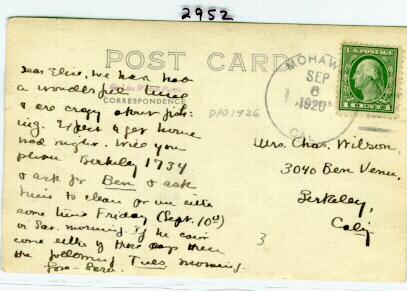 2952
POST CARD
CORRESPONDENCE
MOHAWK
SEP
6
1920
CAL.
U.S. POSTAGE
1 CENT 1
DPO 1926
Dear Elsie, We have had
a wonderful time
& are crazy about fish-
ing. Expect to get home
Wed night. Will you
phone Berkeley 1734
& ask for Ben & ask
him to clean for me either
some time Friday (Sept. 10th)
or Sat. morning. If he can't
come either of those days then
the following Tues. morning.
Love - Sara.
Mrs. Chas. Wilson.
3040 Ben Venue,
Berkeley,
Calif.
3